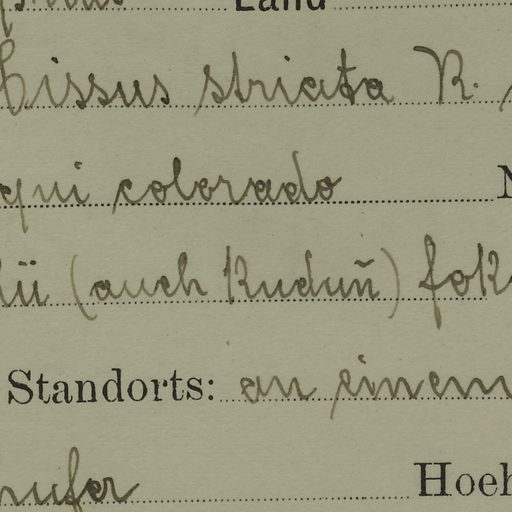 Land
Cissus striata R.
qui colorado
lü (auch Kuduñ) fok
Standorts: an einem
nufer Hoeh